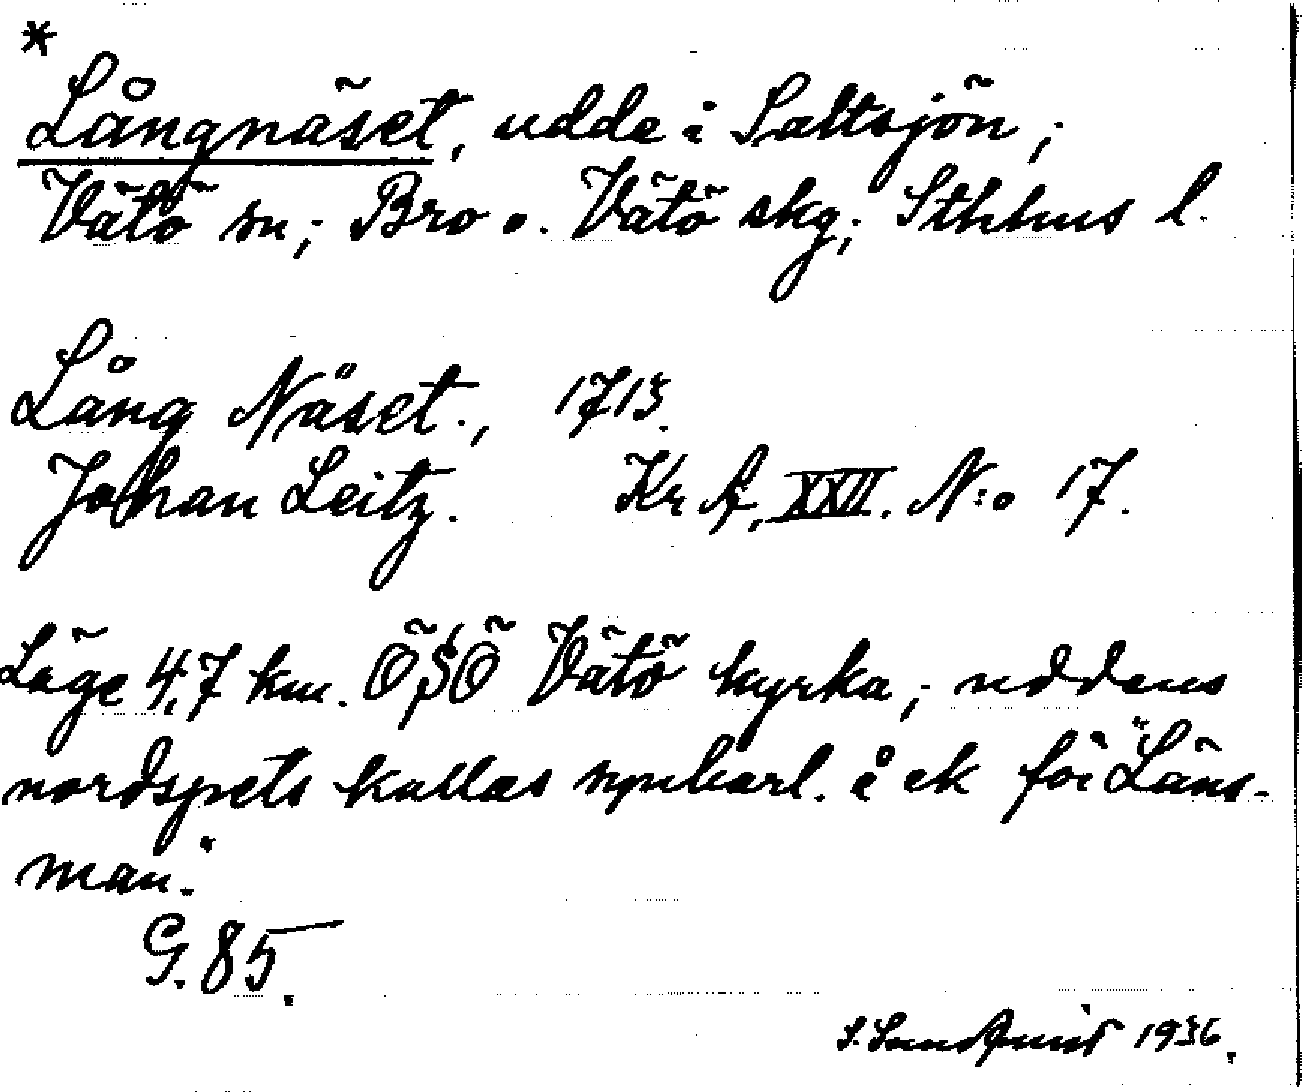 *
Långnäset, udde i Saltsjön;
Vätö sn; Bro o. Vätö skg; Sthhus l.
Lång Näset., 1713.
Johan Leitz. Kr A, XXII. N:o 17.
Läge 4,7 km. ÖSÖ Vätö kyrka; uddens
nordspets kallas synbarl. å ek för "Läns-
man."
G. 85.
S. Sundquist 1936.